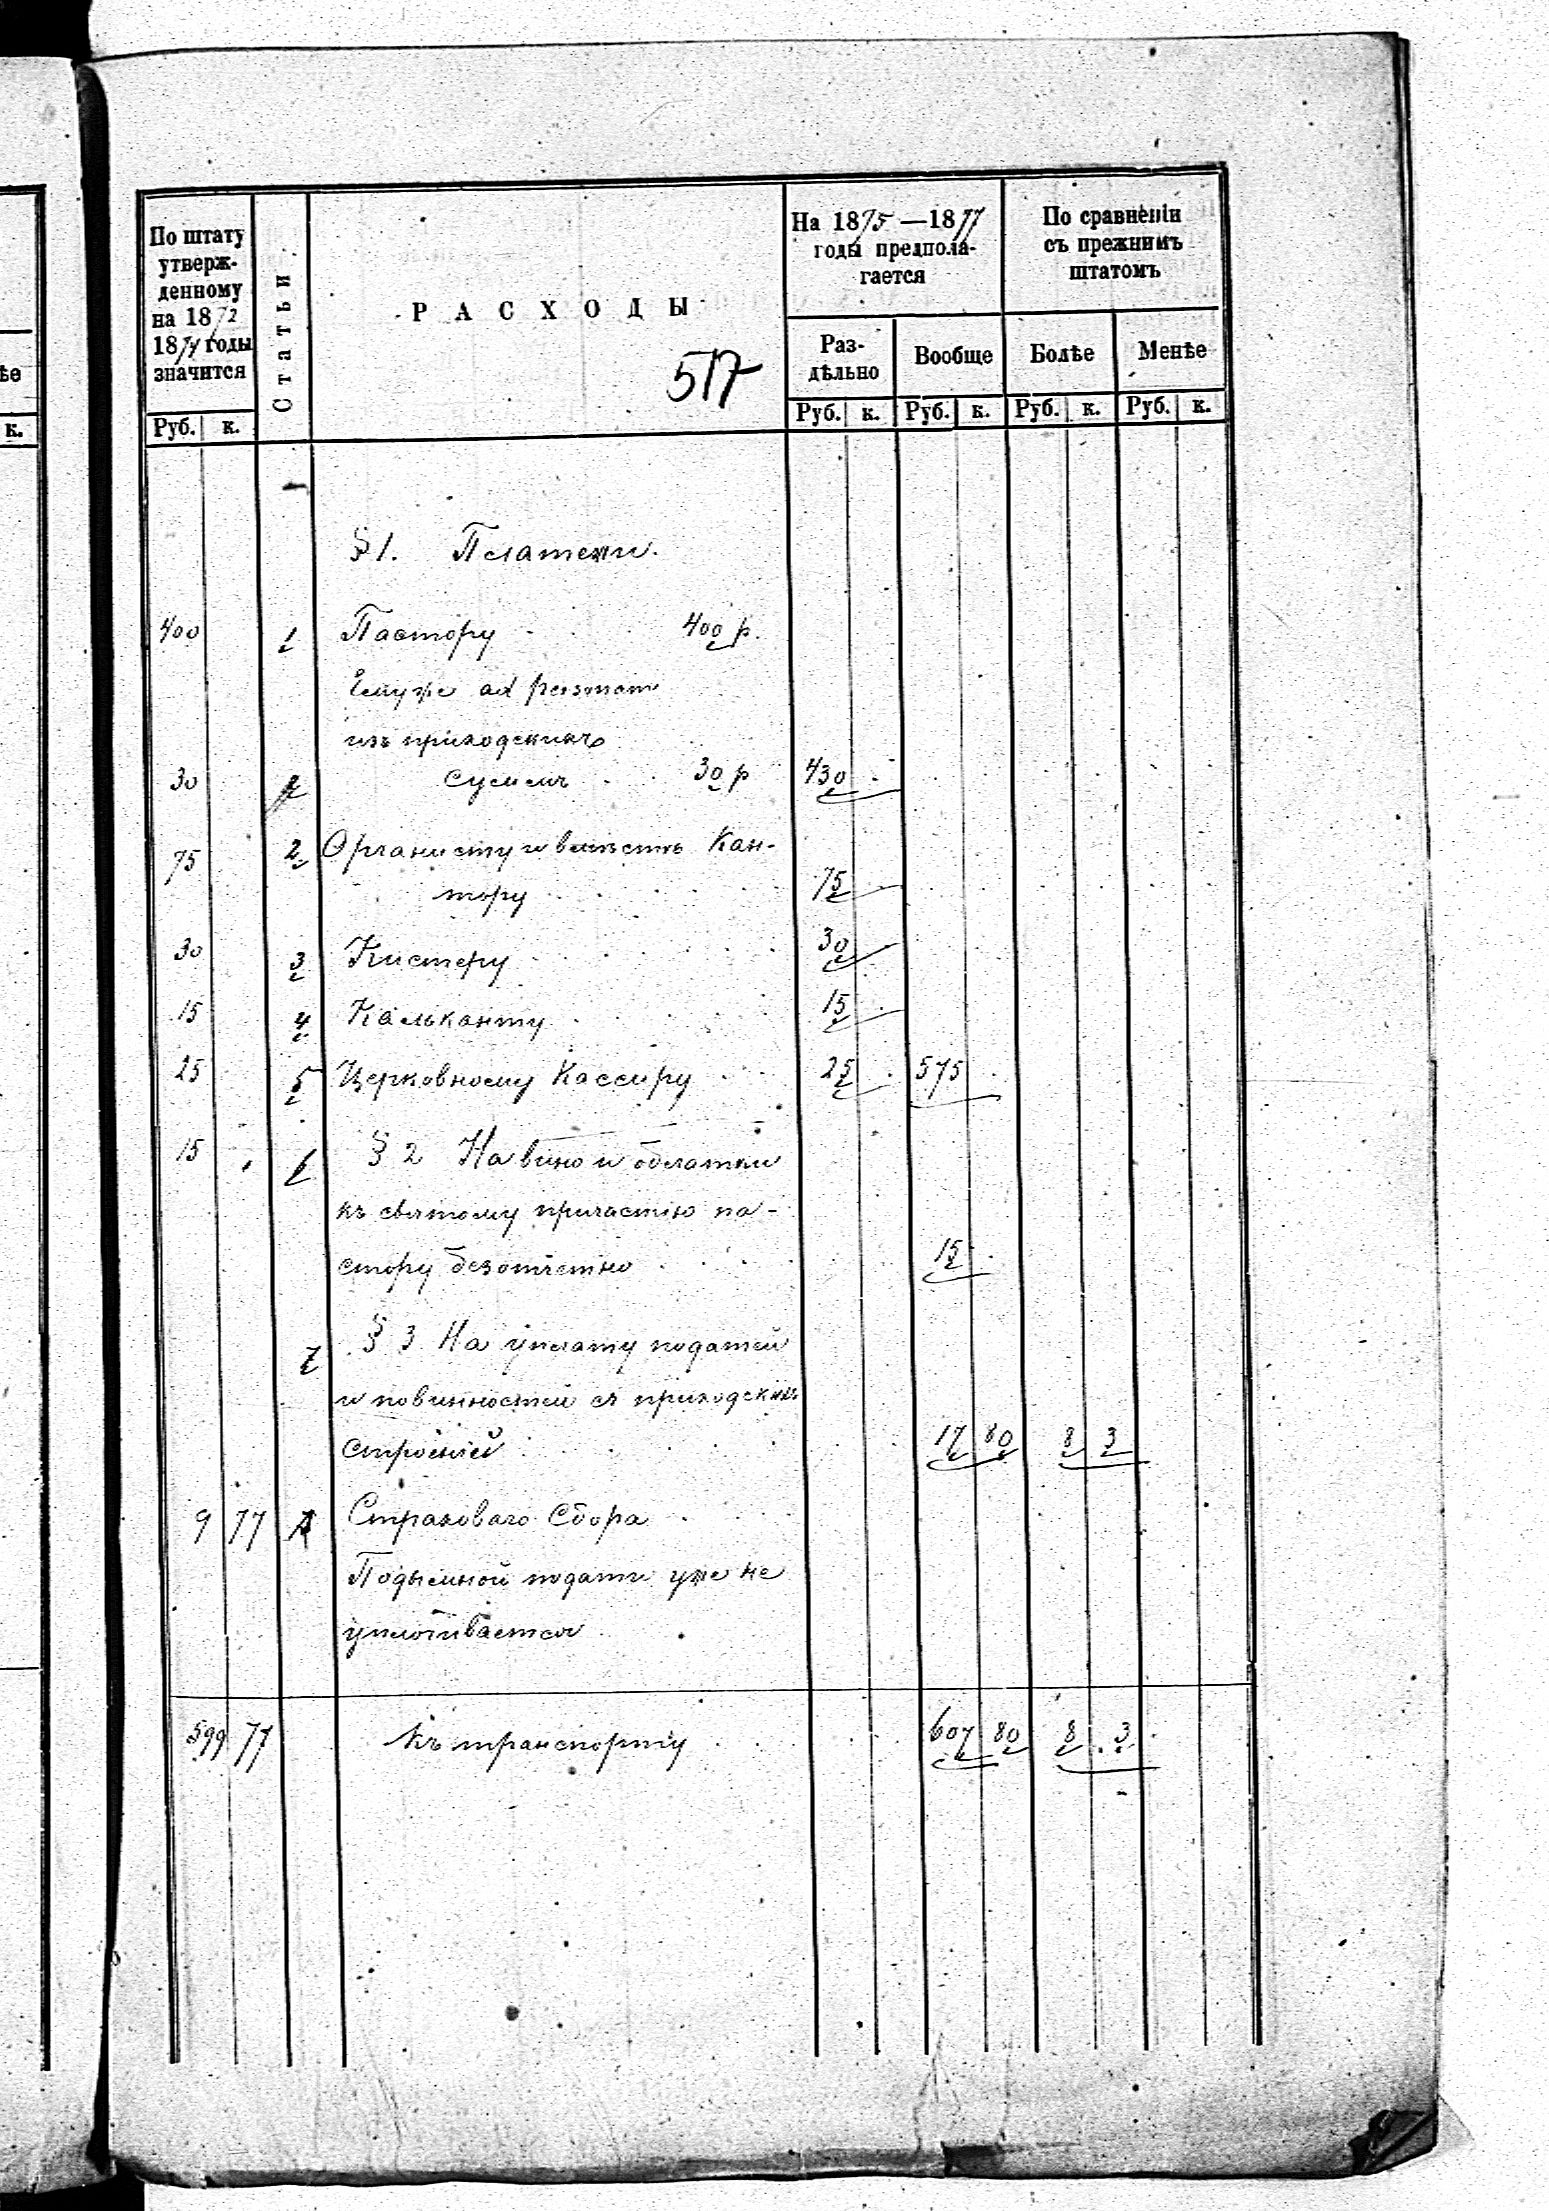 По штату
утверж-
денному
на 1872
1874 годы
значится
Статьи
РАСХОДЫ
517
На 1875—1877
годы предпола-
гается
По сравненіи
съ прежнимъ
штатомъ
Раз-
дѣльно
Вообще
Болѣе
Менѣе
ѣе
к.
Руб. к.
Руб. к. Руб. к. Руб. к. Руб. к.
§ 1. Платежи.
400 1 Пастору 400 р.
Ему же ad personam
изъ приходскихъ
30 суммъ 30 р 430
75 2 Органисту и вмѣстѣ Кан-
тору 75
30 3 Кистеру 30
15 4 Кальканту 15
25 5 Церковному Кассиру 25 575
15 6 § 2 На вино и облатки
къ святому причастію па-
стору безотчетно 15
7 § 3 На уплату податей
и повинностей съ приходскихъ
строеній 17 80 8 3
9 77 Страховаго Сбора
Подымной подати уже не
уплачивается
599 77 Къ транспорту 607 80 8 3